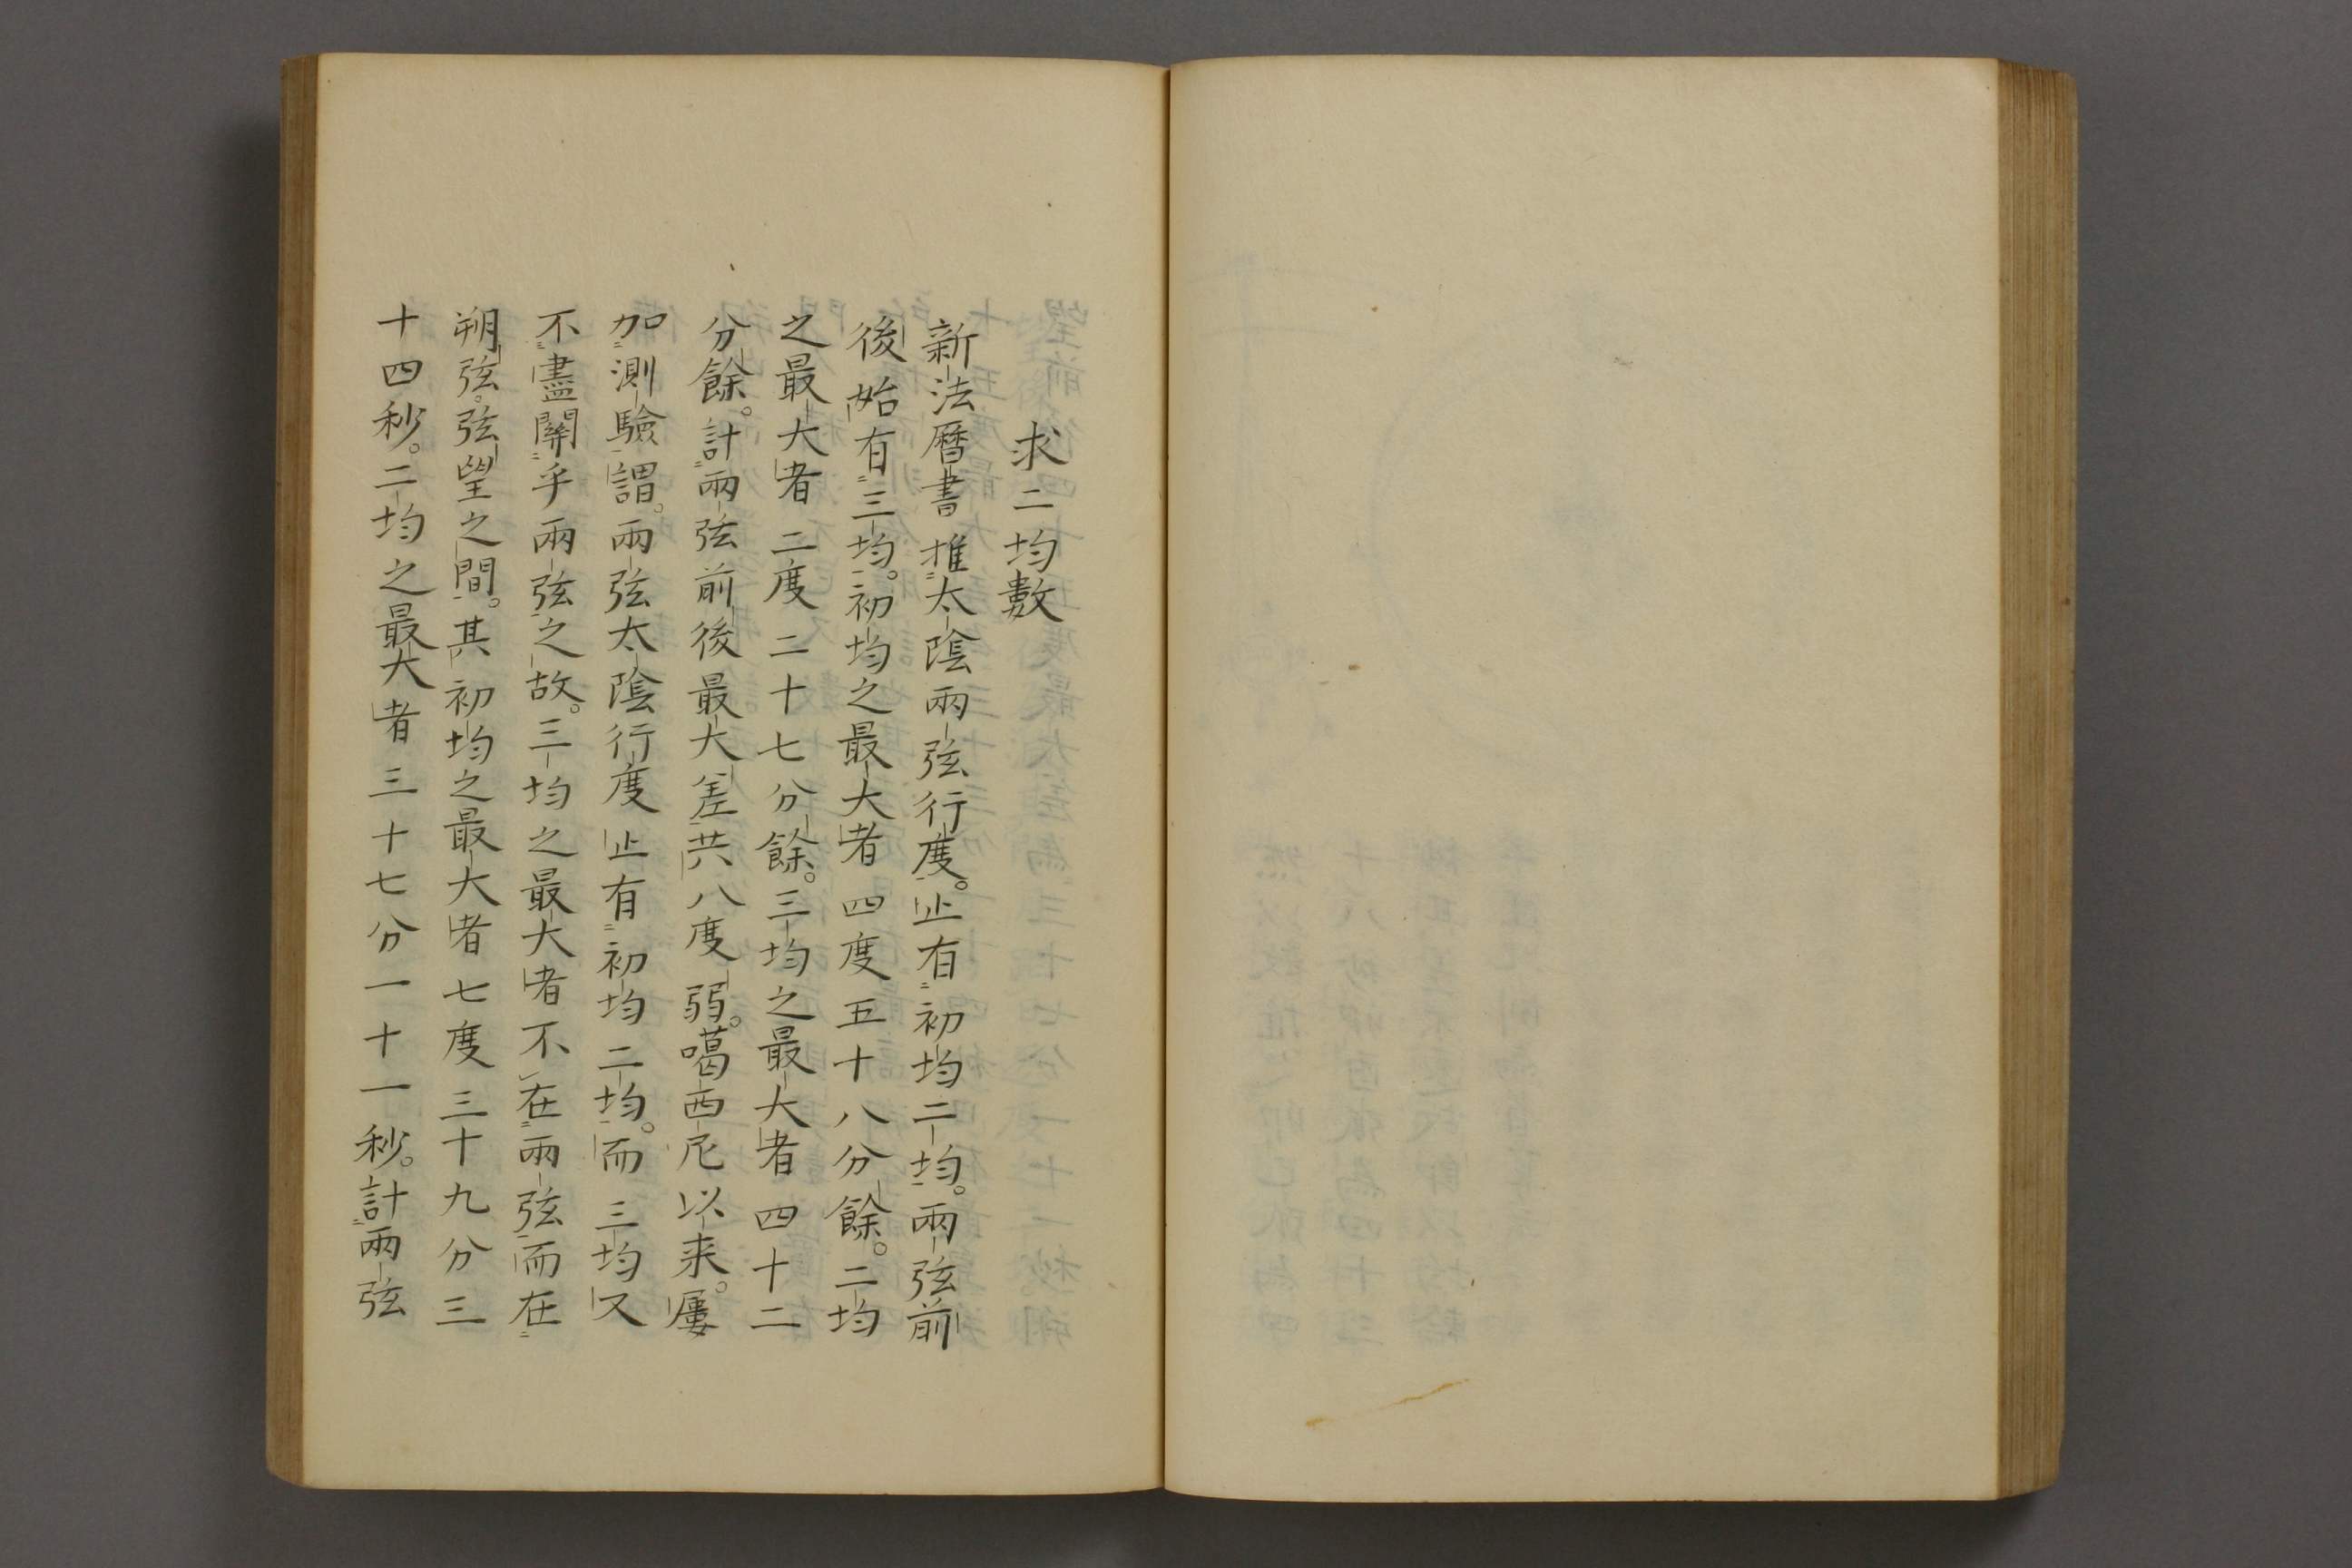 求二均數
新法曆書推太陰兩弦行度。止有初均二均。兩弦前
後始有三均。初均之最大者四度五十八分餘。二均
之最大者二度二十七分餘。三均之最大者四十二
分餘。計兩弦前後最大差共八度弱。噶西尼以来。屢
加測驗謂。兩弦太陰行度止有初均二均。而三均又
不盡關乎兩弦之故。三均之最大者不在兩弦而在
朔弦。弦望之間。其初均之最大者七度三十九分三
十四秒。二均之最大者三十七分一十一秒。計兩弦